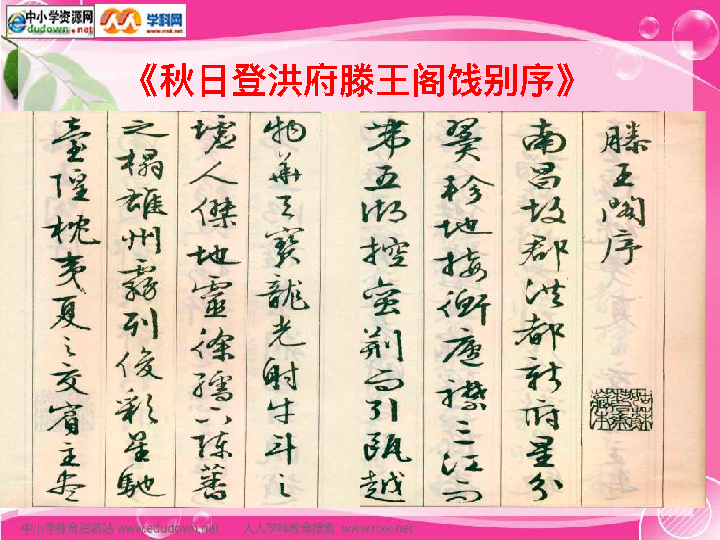 中小学资源网
edudown.net
学科网
www.nxk.net
《秋日登洪府滕王阁饯别序》
滕王阁序
南昌故郡洪都新府星分
翼轸地接衡庐襟三江而
带五湖控蛮荆而引瓯越
物华天宝龙光射牛斗之
墟人傑地靈徐孺下陈蕃
之榻雄州霧列俊彩星馳
臺隍枕夷夏之交賓主尽
中小学教育资源站 www.edudown.net 人人学科教育搜索 www.rrxk.net